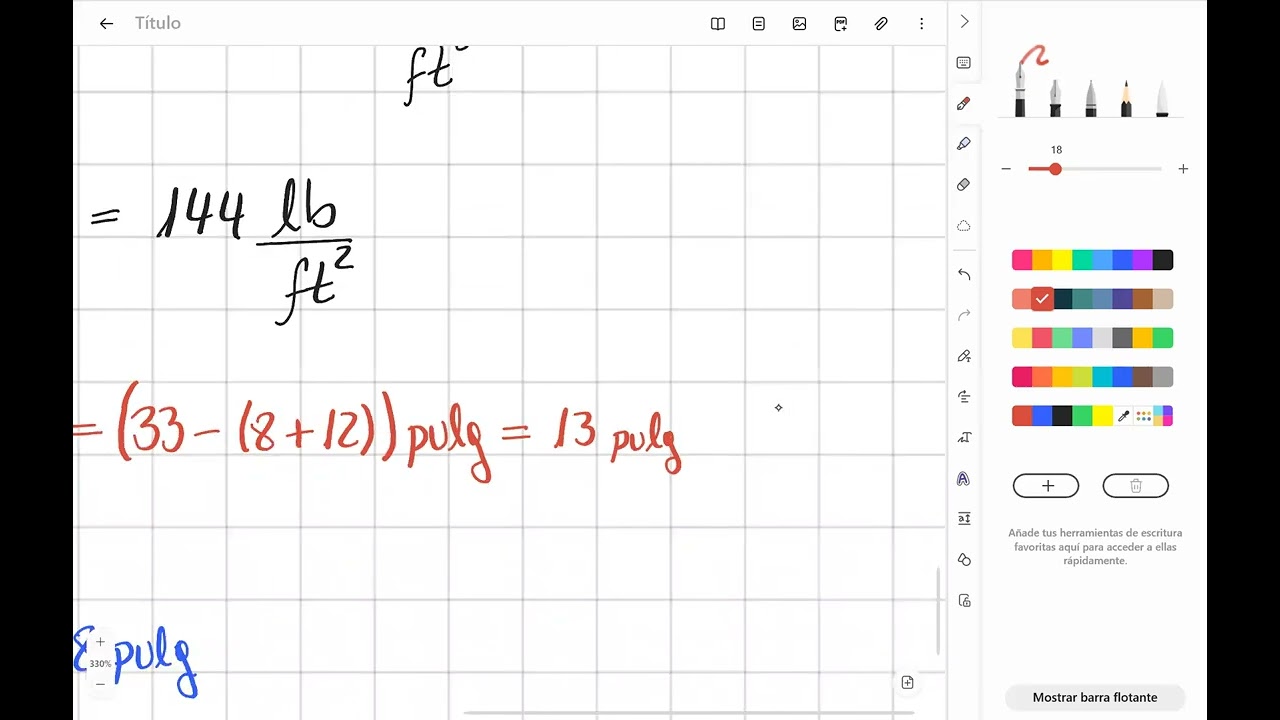 Título
ft²
18
= 144 lb
ft²
= (33 - (8 + 12)) pulg = 13 pulg
Añade tus herramientas de escritura
favoritas aquí para acceder a ellas
rápidamente.
pulg
330%
Mostrar barra flotante